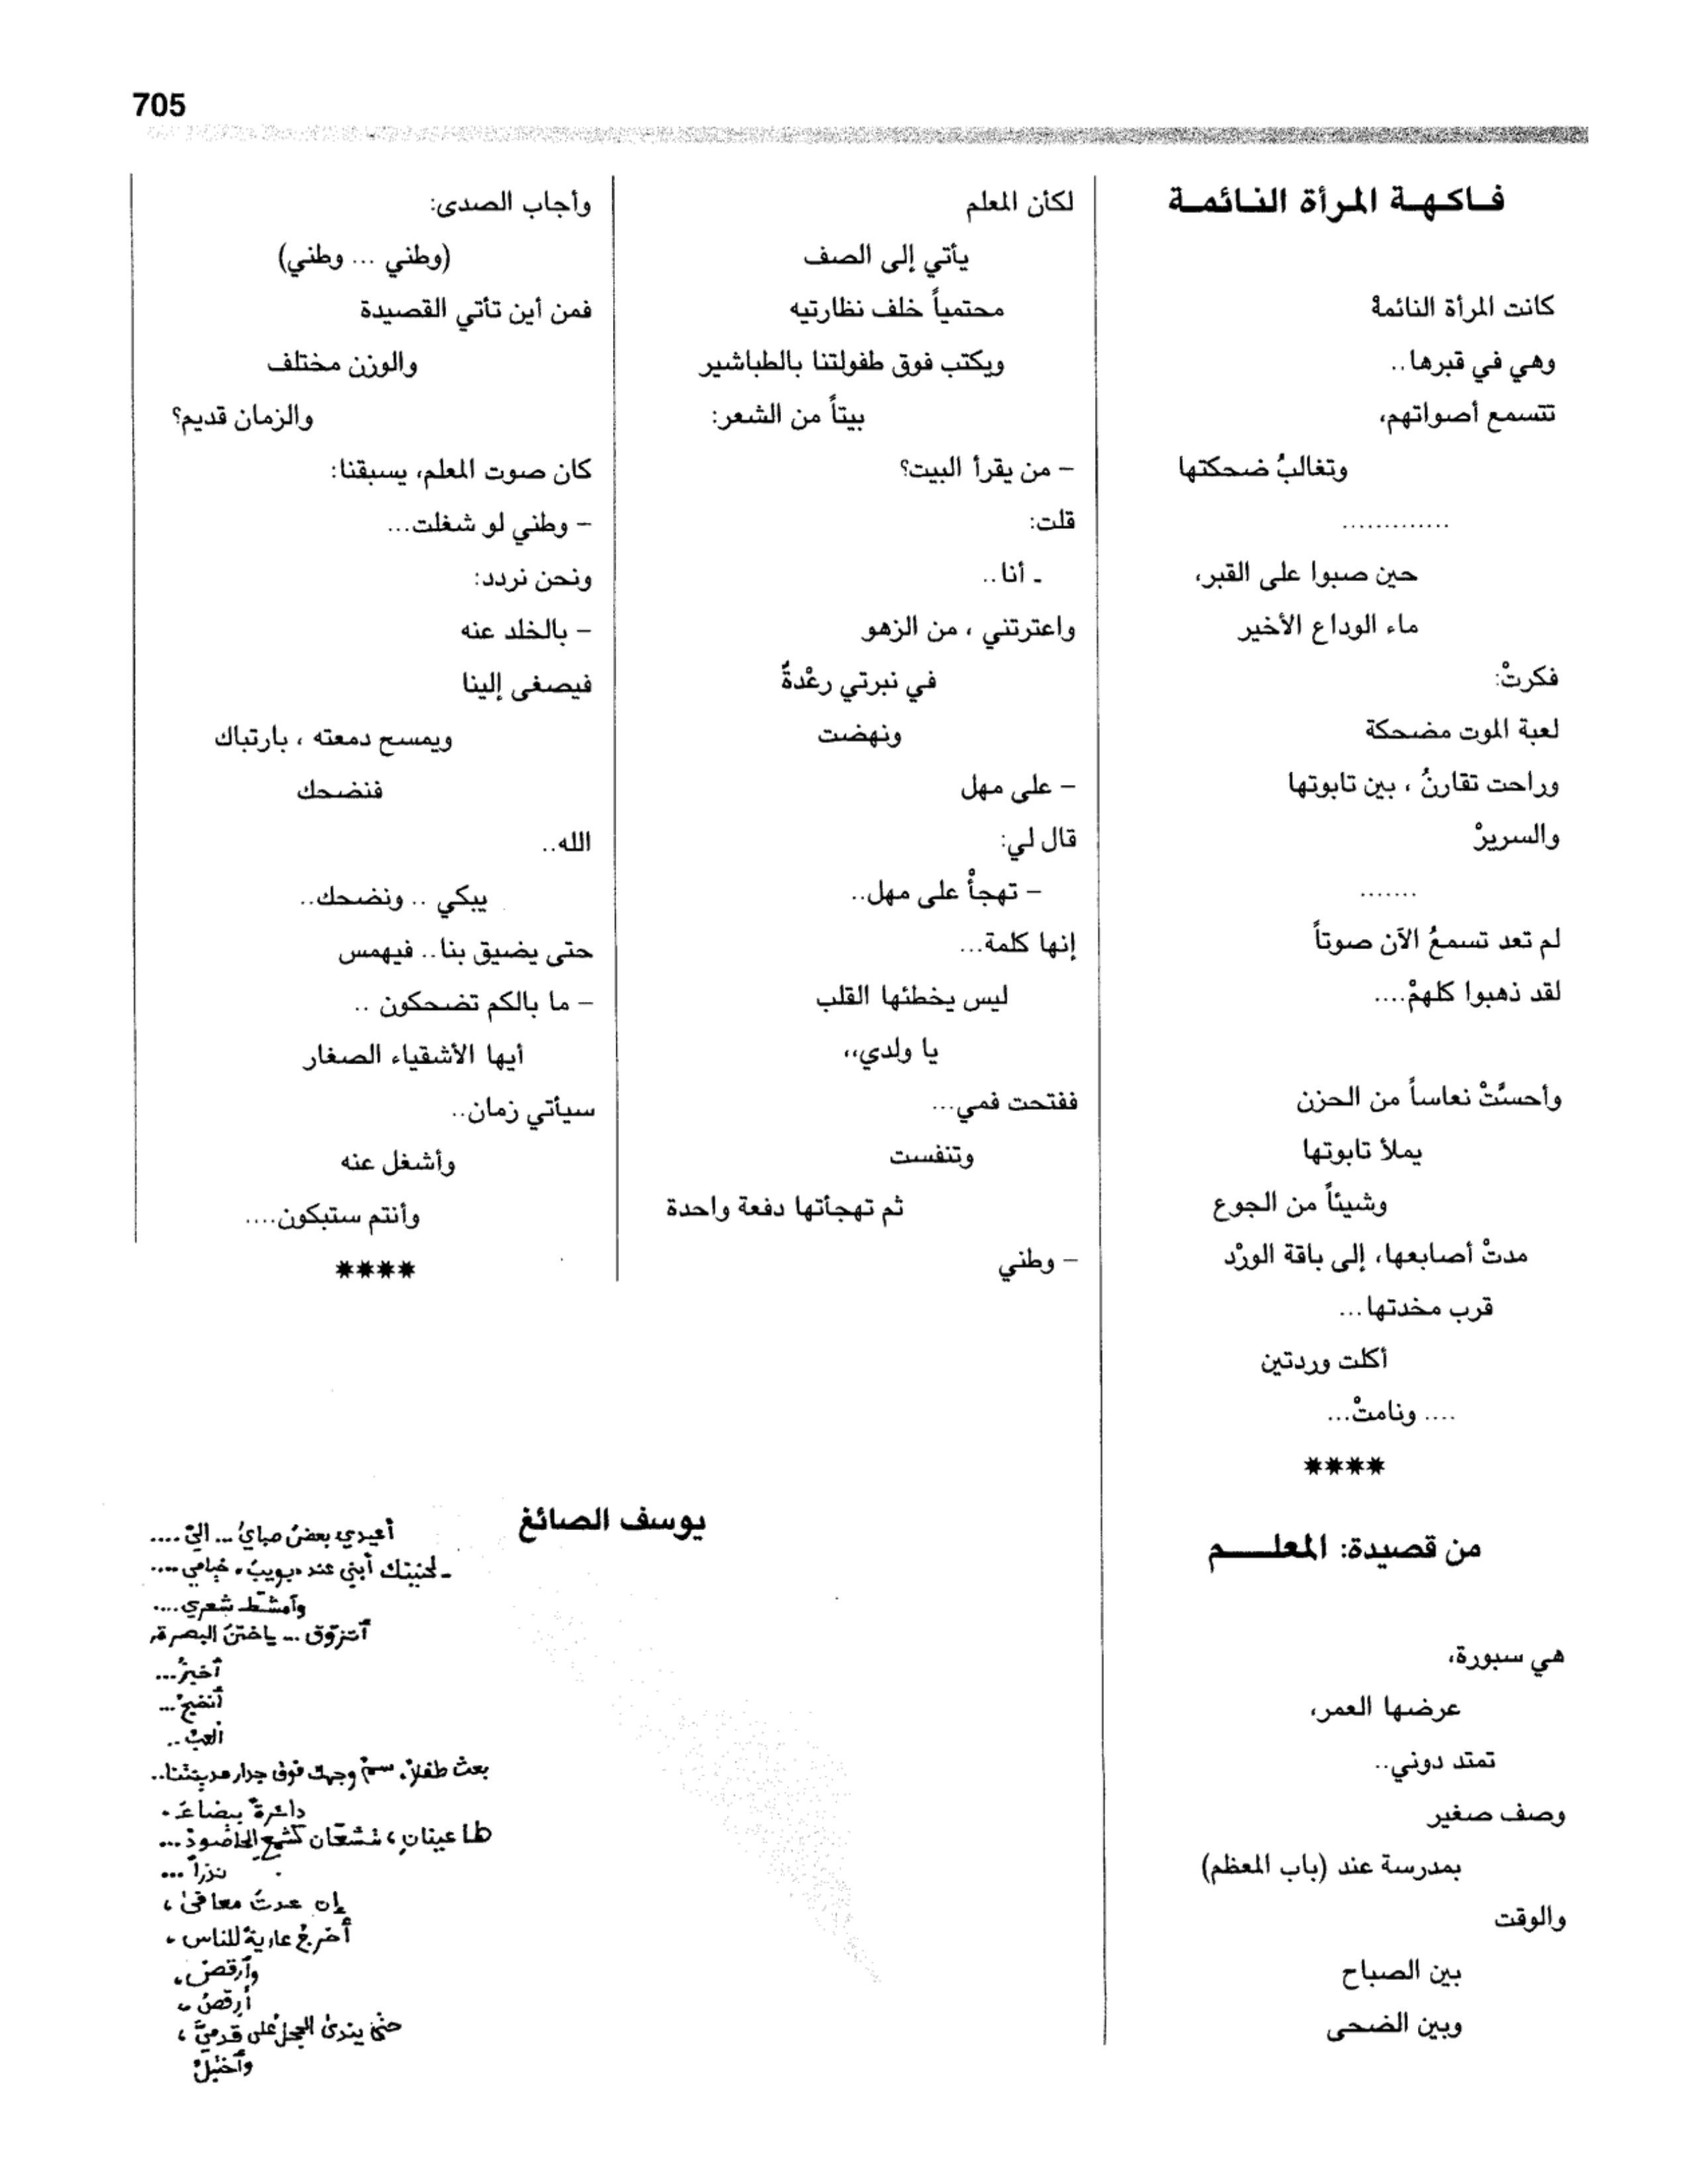 705
فـاكـهـة المـرأة النـائمـة
كانت المرأة النائمهْ
وهي في قبرها..
تتسمع أصواتهم،
وتغالبُ ضحكتها
.............
حين صبوا على القبر،
ماء الوداع الأخير
فكرتْ:
لعبة الموت مضحكة
وراحت تقارنُ ، بين تابوتها
والسريرْ
.......
لم تعد تسمعُ الآن صوتاً
لقد ذهبوا كلهمْ....
وأحسَّتْ نعاساً من الحزن
يملأ تابوتها
وشيئاً من الجوع
مدتْ أصابعها، إلى باقة الورْد
قرب مخدتها...
أكلت وردتين
.... ونامتْ...
****
من قصيدة: المعلـــــم
هي سبورة،
عرضها العمر،
تمتد دوني..
وصف صغير
بمدرسة عند (باب المعظم)
والوقت
بين الصباح
وبين الضحى
لكأن المعلم
يأتي إلى الصف
محتمياً خلف نظارتيه
ويكتب فوق طفولتنا بالطباشير
بيتاً من الشعر:
– من يقرأ البيت؟
قلت:
ـ أنا..
واعترتني ، من الزهو
في نبرتي رعْدةٌ
ونهضت
– على مهل
قال لي:
– تهجأْ على مهل..
إنها كلمة...
ليس يخطئها القلب
يا ولدي،،
ففتحت فمي...
وتنفست
ثم تهجأتها دفعة واحدة
– وطني
وأجاب الصدى:
(وطني ... وطني)
فمن أين تأتي القصيدة
والوزن مختلف
والزمان قديم؟
كان صوت المعلم، يسبقنا:
– وطني لو شغلت...
ونحن نردد:
– بالخلد عنه
فيصغى إلينا
ويمسح دمعته ، بارتباك
فنضحك
الله..
يبكي .. ونضحك..
حتى يضيق بنا.. فيهمس
– ما بالكم تضحكون ..
أيها الأشقياء الصغار
سيأتي زمان..
وأشغل عنه
وأنتم ستبكون....
****
يوسف الصائغ
أعيدي بعضَ صبايَ ... اليّ ....
ـ لحنينك أبني عند «بويب» خيامي ....
وأمشّط شعري....
أتزوّق ... ياختنَ البصرة،
أخبزُ...
أنضجُ...
ألعبُ..
بعثَ طفلاً، وجهك فوق جدار مدينتنا..
دائرةً بيضاءَ.
لها عينانِ، تشعّان كشمع ...
نذراً ...
إن عدتَ معافىً ،
أخرجُ عاريةً للناس،
وأرقصُ،
أرقصُ،
حتى يندى الحجلُ على قدميَّ ،
وأخبلْ